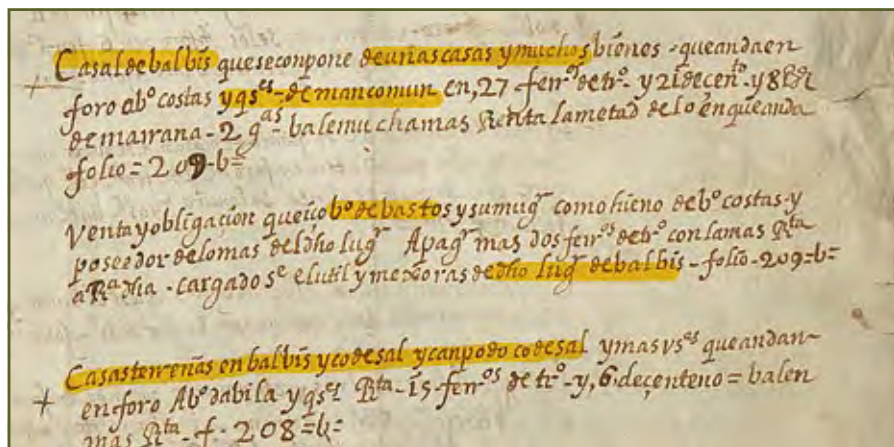 Casal de balbis que se conpone de uñas casas y muchos bienes - que anda en
foro a bº costas y qs^es - de mancomun en, 27 - fen^os de trº - y 21 de çen^to - y 8
de marrana - 2 g^as - bale mucha mas Renta la metad de lo en que anda
folio = 209 - b=
Venta y obligaçion que iço bº de bastos y su mug^r como hieno de bº costas - y
poseedor de lo mas del dho lug^r A pag^r mas dos fen^os de trº con la mas R^ta
a R^a dia - cargado s^e el util y mexoras de dho lug^r de balbis - folio - 209 = b=
Casas terreñas en balbis y codesal y canpo do codesal y mas vs^es que andan
en foro A bº dabila y qs^es R^ta - 15 - fen^os de trº - y, 6 - de çenteno = balen
mas R^ta - f - 208 = b=